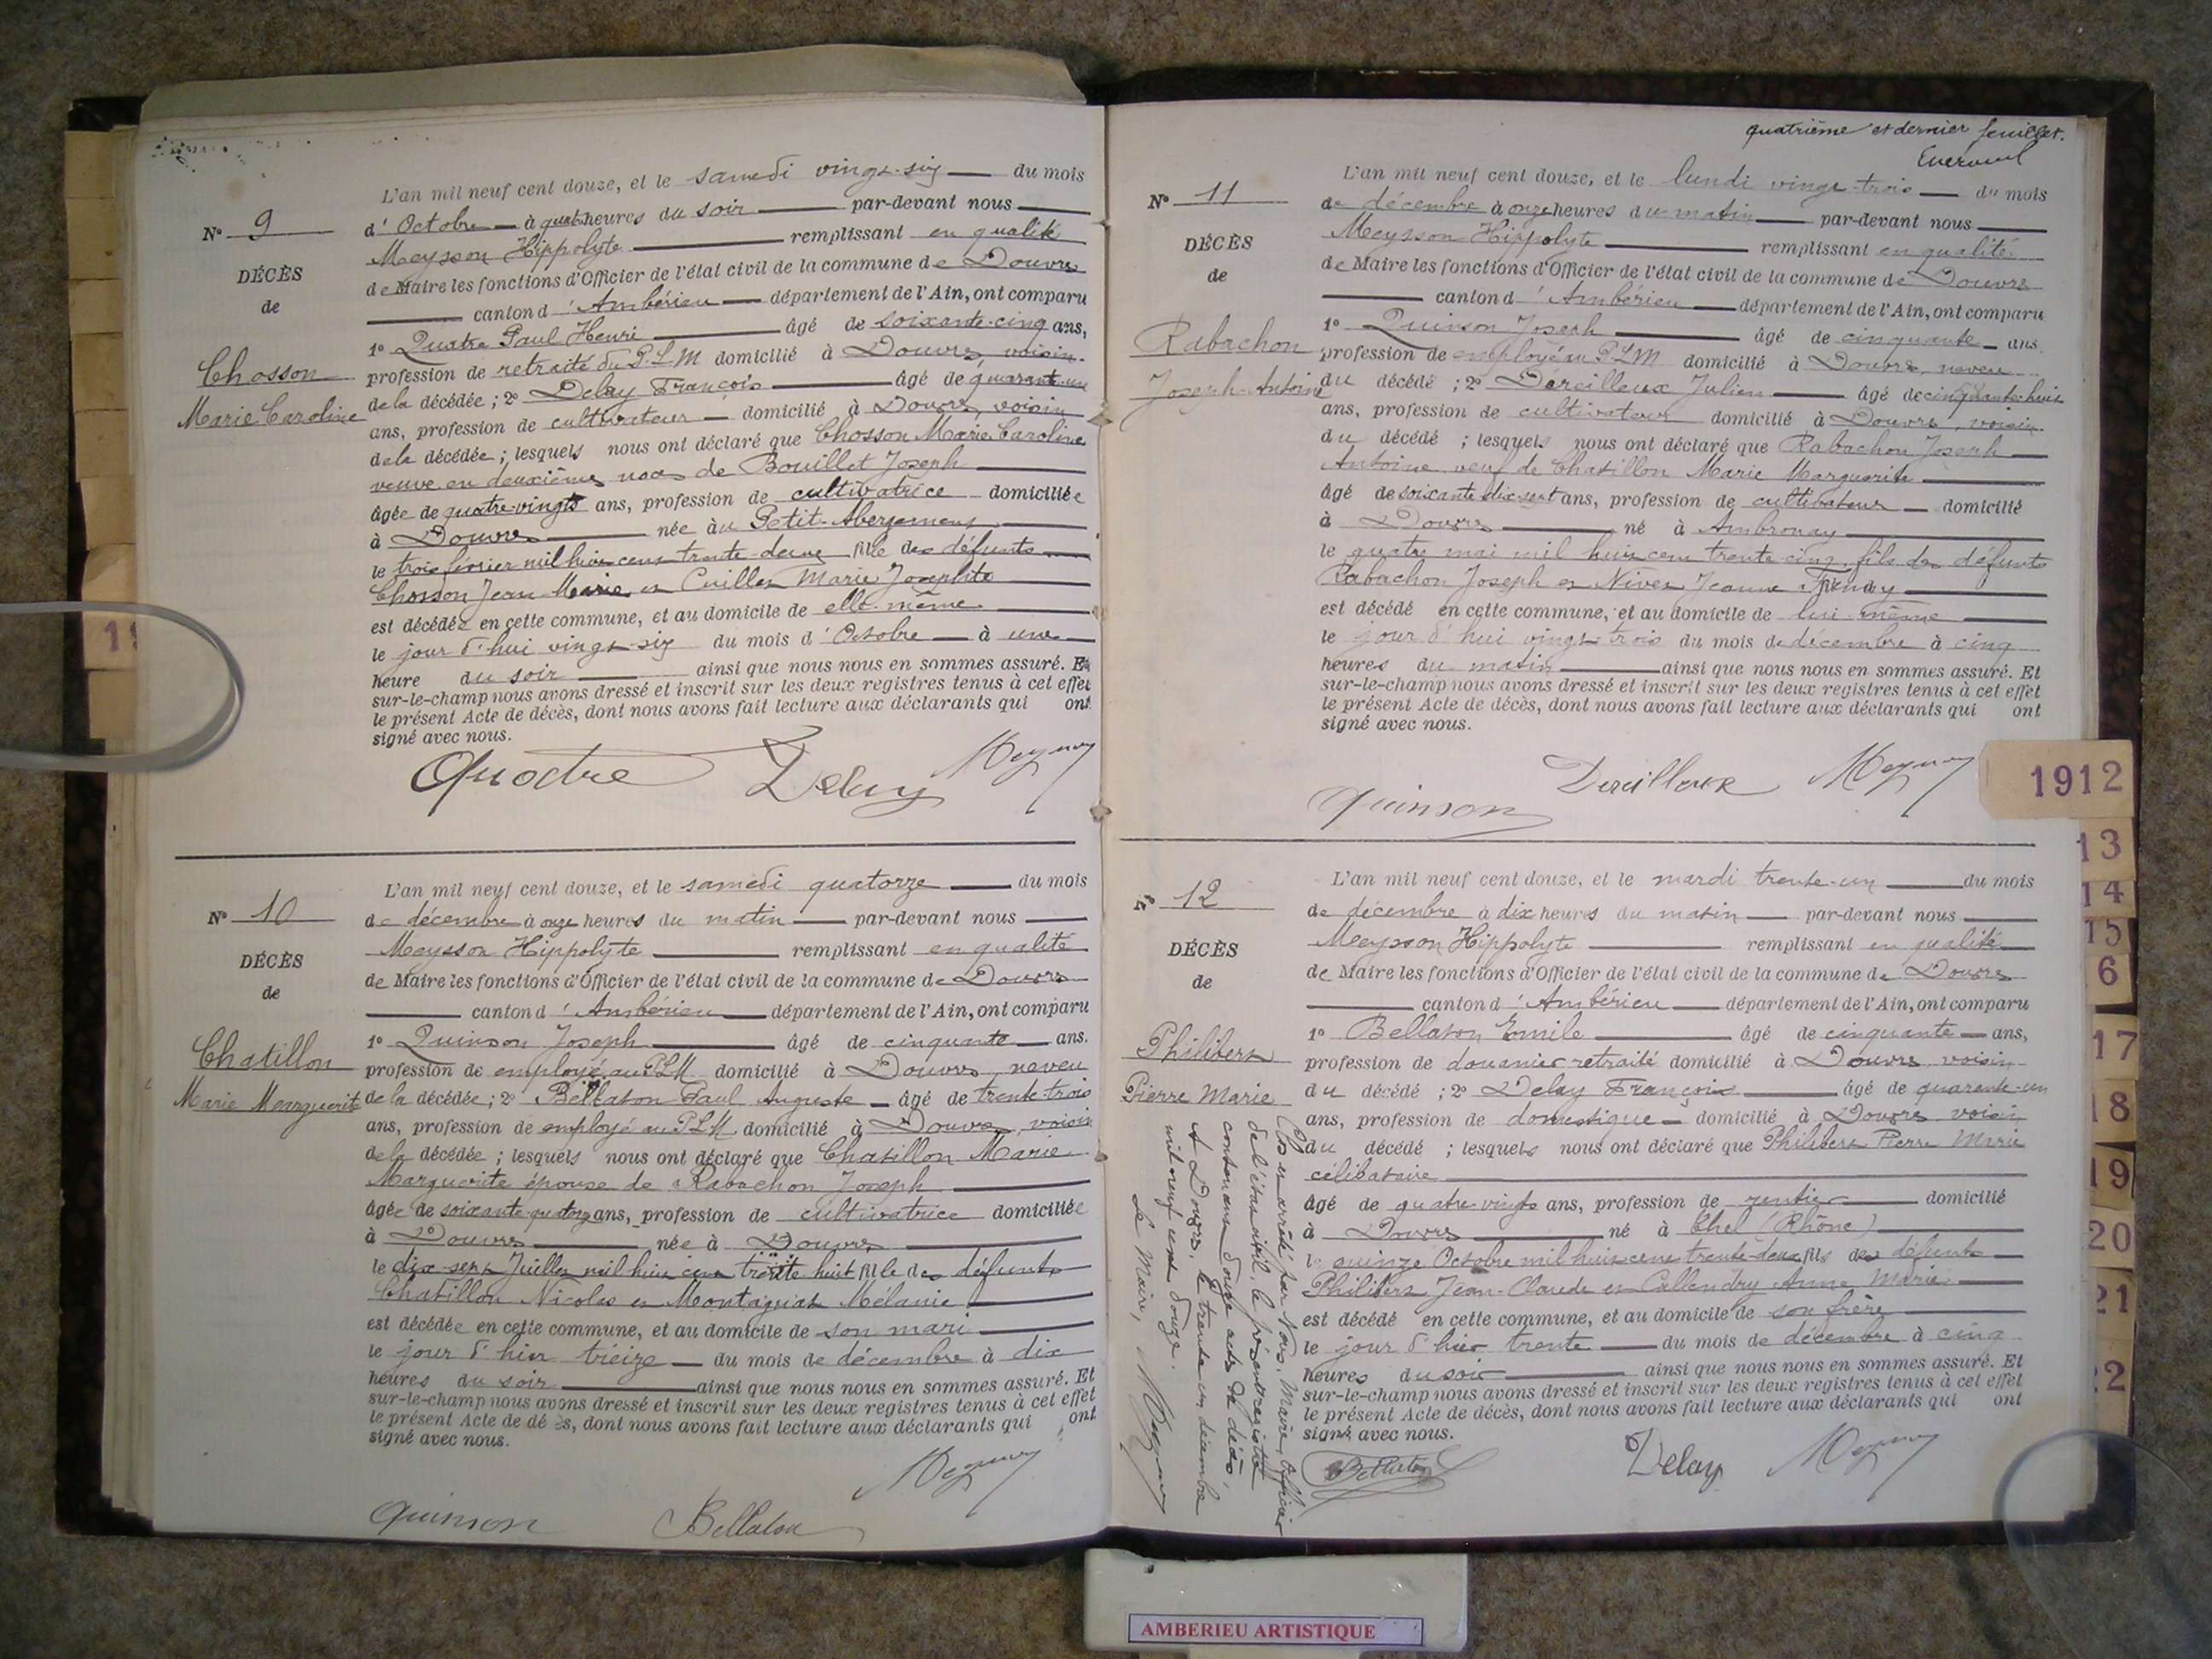 L'an mil neuf cent douze, et le samedi vingt-six du mois
d'Octobre à quatre heures du soir par-devant nous
Meysson Hippolyte remplissant en qualité
de Maire les fonctions d'Officier de l'état civil de la commune de Douvres
canton d'Ambérieu département de l'Ain, ont comparu
1º Quatre Paul Henri âgé de soixante-cinq ans,
profession de retraité du P.L.M domicilié à Douvres, voisin
de la décédée; 2º Delay François âgé de quarante-un
ans, profession de cultivateur domicilié à Douvres, voisin
de la décédée; lesquels nous ont déclaré que Chosson Marie Caroline
veuve en deuxièmes noces de Bouillet Joseph
âgée de quatre-vingts ans, profession de cultivatrice domiciliée
à Douvres née au Petit-Abergement
le trois février mil huit cent trente-deux fille des défunts
Chosson Jean-Marie et Marie Josephte
est décédée en cette commune, et au domicile de elle-même
le jour d'hui vingt-six du mois d'Octobre à une
heure du soir ainsi que nous nous en sommes assuré. Et
sur-le-champ nous avons dressé et inscrit sur les deux registres tenus à cet effet
le présent Acte de décès, dont nous avons fait lecture aux déclarants qui ont
signé avec nous.
Nº 9
DÉCÈS
de
Chosson
Marie Caroline
Quatre Delay Meysson
L'an mil neuf cent douze, et le samedi quatorze du mois
de décembre à onze heures du matin par-devant nous
Meysson Hippolyte remplissant en qualité
de Maire les fonctions d'Officier de l'état civil de la commune de Douvres
canton d'Ambérieu département de l'Ain, ont comparu
1º Quinson Joseph âgé de cinquante ans.
profession de employé au P.L.M domicilié à Douvres, neveu
de la décédée; 2º Bellaton Paul Auguste âgé de trente-trois
ans, profession de employé au P.L.M. domicilié à Douvres, voisin
de la décédée; lesquels nous ont déclaré que Chatillon Marie
Marguerite épouse de Rabachon Joseph
âgée de soixante quatorze ans, profession de cultivatrice domiciliée
à Douvres née à Douvres
le dix-sept Juillet mil huit cent trente-huit fille des défunts
Chatillon Nicolas et Montagnat Mélanie
est décédée en cette commune, et au domicile de son mari
le jour d'hier treize du mois de décembre à dix
heures du soir ainsi que nous nous en sommes assuré. Et
sur-le-champ nous avons dressé et inscrit sur les deux registres tenus à cet effet
le présent Acte de décès, dont nous avons fait lecture aux déclarants qui ont
signé avec nous.
Nº 10
DÉCÈS
de
Chatillon
Marie Marguerite
Meysson
Quinson Bellaton
quatrième et dernier feuillet.
L'an mil neuf cent douze, et le lundi vingt-trois du mois
de décembre à onze heures du matin par-devant nous
Meysson Hippolyte remplissant en qualité
de Maire les fonctions d'Officier de l'état civil de la commune de Douvres
canton d'Ambérieu département de l'Ain, ont comparu
1º Quinson Joseph âgé de cinquante ans
profession de employé au P.L.M domicilié à Douvres, neveu
du décédé; 2º Dereilleux Julien âgé de cinquante-huit
ans, profession de cultivateur domicilié à Douvres, voisin
du décédé; lesquels nous ont déclaré que Rabachon Joseph
Antoine veuf de Chatillon Marie Marguerite
âgé de soixante dix sept ans, profession de cultivateur domicilié
à Douvres né à Ambronay
le quatre mai mil huit cent trente cinq, fils des défunts
Rabachon Joseph et Nivet Jeanne
est décédé en cette commune, et au domicile de lui-même
le jour d'hui vingt-trois du mois de décembre à cinq
heures du matin ainsi que nous nous en sommes assuré. Et
sur-le-champ nous avons dressé et inscrit sur les deux registres tenus à cet effet
le présent Acte de décès, dont nous avons fait lecture aux déclarants qui ont
signé avec nous.
Nº 11
DÉCÈS
de
Rabachon
Joseph-Antoine
Dereilleux Meysson
Quinson
L'an mil neuf cent douze, et le mardi trente-un du mois
de décembre à dix heures du matin par-devant nous
Meysson Hippolyte remplissant en qualité
de Maire les fonctions d'Officier de l'état civil de la commune de Douvres
canton d'Ambérieu département de l'Ain, ont comparu
1º Bellaton Emile âgé de cinquante ans,
profession de douanier retraité domicilié à Douvres voisin
du décédé; 2º Delay François âgé de quarante-un
ans, profession de domestique domicilié à Douvres voisin
du décédé; lesquels nous ont déclaré que Philibert Pierre Marie
célibataire
âgé de quatre-vingts ans, profession de rentier domicilié
à Douvres né à Thel (Rhône)
le quinze Octobre mil huit cent trente-deux fils des défunts
Philibert Jean-Claude et Callendry Anne Marie
est décédé en cette commune, et au domicile de son frère
le jour d'hier trente du mois de décembre à cinq
heures du soir ainsi que nous nous en sommes assuré. Et
sur-le-champ nous avons dressé et inscrit sur les deux registres tenus à cet effet
le présent Acte de décès, dont nous avons fait lecture aux déclarants qui ont
signé avec nous.
Nº 12
DÉCÈS
de
Philibert
Pierre Marie
Clos et arrêté par Nous, Maire, Officier
de l'état civil, le présent registre
contenant douze actes de décès,
A Douvres, le trente un décembre
mil neuf cent douze.
Le Maire, Meysson
Bellaton Delay Meysson
1912
13
14
15
6
17
18
19
20
21
22
AMBERIEU ARTISTIQUE